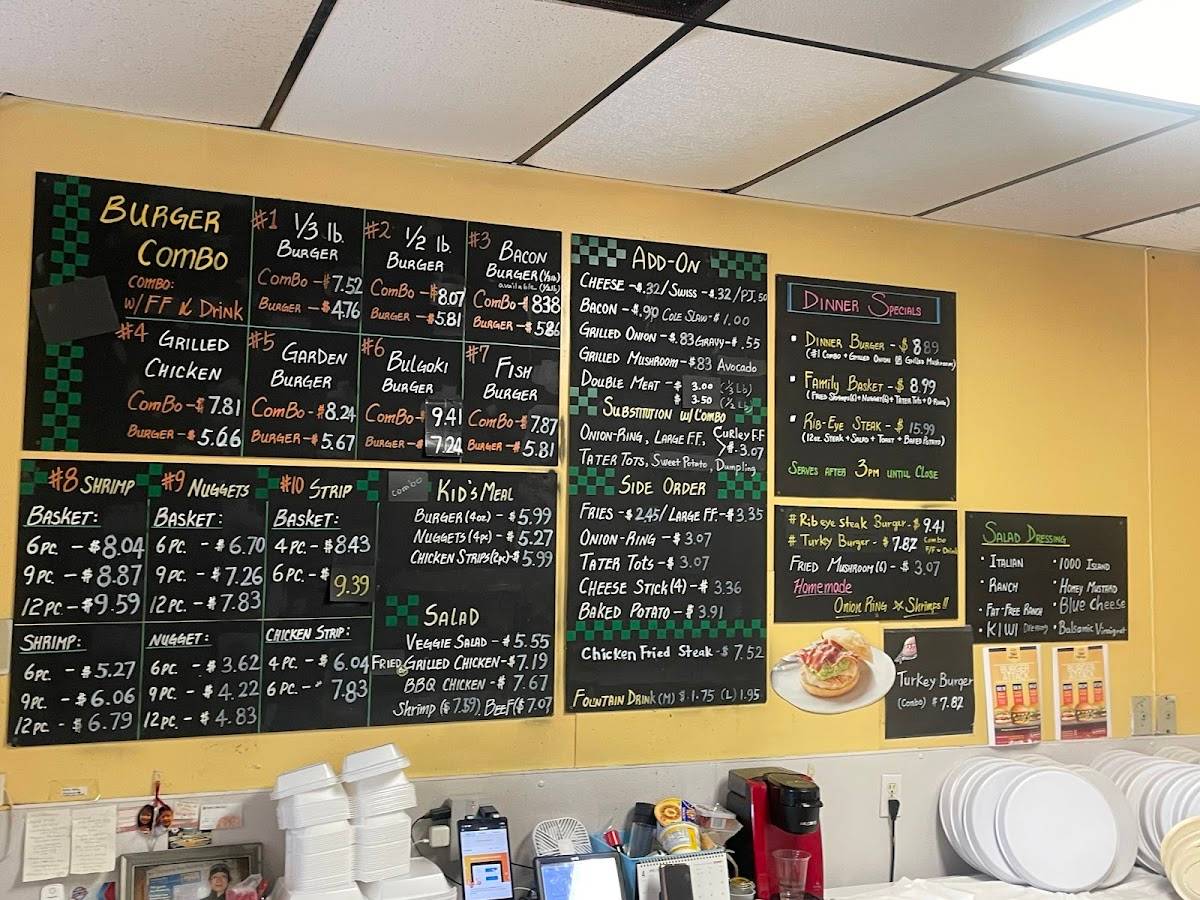 BURGER
COMBO
COMBO:
W/FF & DRINK
#1 1/3 lb.
BURGER
COMBO - $7.52
BURGER - $4.76
#2 1/2 lb.
BURGER
COMBO - $8.07
BURGER - $5.81
#3 BACON
BURGER (1/3lb)
available (1/2lb)
COMBO - $8.38
BURGER - $5.86
#4 GRILLED
CHICKEN
COMBO - $7.81
BURGER - $5.66
#5 GARDEN
BURGER
COMBO - $8.24
BURGER - $5.67
#6 BULGOKI
BURGER
COMBO - 9.41
BURGER - 7.24
#7 FISH
BURGER
COMBO - $7.87
BURGER - $5.81
#8 SHRIMP
BASKET:
6PC. - $8.04
9PC. - $8.87
12PC. - $9.59
SHRIMP:
6PC. - $5.27
9PC. - $6.06
12PC. - $6.79
#9 NUGGETS
BASKET:
6PC. - $6.70
9PC. - $7.26
12PC. - $7.83
NUGGET:
6PC. - $3.62
9PC. - $4.22
12PC. - $4.83
#10 STRIP
BASKET:
4PC. - $8.43
6PC. - $9.39
CHICKEN STRIP:
4PC. - $6.04
6PC. - $7.83
combo KID'S MEAL
BURGER (4oz) - $5.99
NUGGETS (4pc) - $5.27
CHICKEN STRIPS (2pc) - $5.99
SALAD
VEGGIE SALAD - $5.55
FRIED GRILLED CHICKEN - $7.19
BBQ CHICKEN - $7.67
Shrimp ($7.59), BEEF ($7.07
ADD-ON
CHEESE - $.32/SWISS - $.32/P.J. 50
BACON - $.90 COLE SLAW - $1.00
GRILLED ONION - $.83 GRAVY - $.55
GRILLED MUSHROOM - $.83 Avocado
DOUBLE MEAT - $ 3.00 (1/3 Lb)
$ 3.50 (1/2 Lb)
SUBSTITUTION W/COMBO
ONION-RING, LARGE FF, CURLEY FF
TATER TOTS, Sweet Potato, Dumpling 3.07
SIDE ORDER
FRIES - $2.45/LARGE FF. - $3.35
ONION-RING - $3.07
TATER TOTS - $3.07
CHEESE STICK (4) - $3.36
BAKED POTATO - $3.91
Chicken Fried Steak - $7.52
FOUNTAIN DRINK (M) $1.75 (L) 1.95
DINNER SPECIALS
DINNER BURGER - $8.89
(#1 COMBO + GRILLED ONION Grilled Mushroom)
FAMILY BASKET - $8.99
RIB-EYE STEAK - $15.99
(12oz. STEAK + SALAD + TOAST + BAKED POTATO)
SERVES AFTER 3PM UNTIL CLOSE
# Rib eye steak Burger - $9.41
# Turkey Burger - $7.82 Combo F/F + Drink
FRIED MUSHROOM (6) - $3.07
Homemade
ONION RING Shrimps!!
SALAD DRESSING
ITALIAN
RANCH
FAT-FREE RANCH
KIWI Dressing
1000 ISLAND
HONEY MUSTARD
BLUE CHEESE
Balsamic Vinaigret
Turkey Burger
(Combo) $7.82